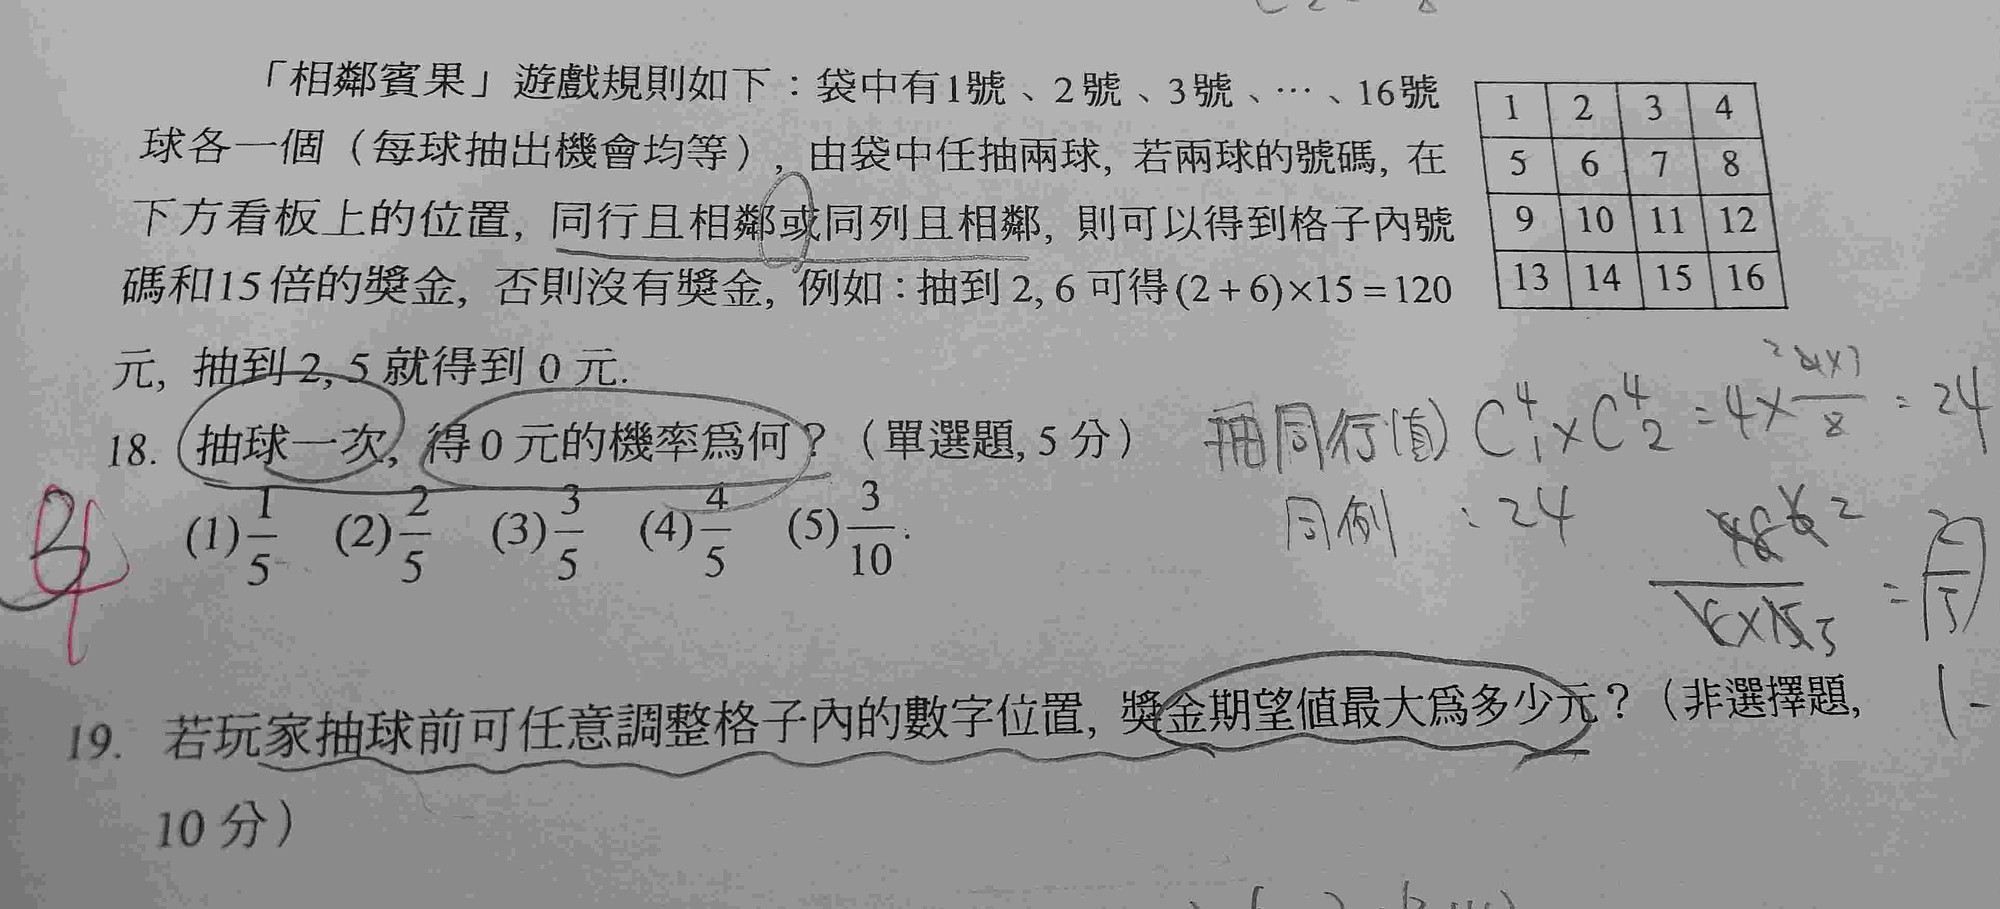 「相鄰賓果」遊戲規則如下：袋中有1號、2號、3號、⋯、16號
球各一個（每球抽出機會均等），由袋中任抽兩球, 若兩球的號碼, 在
下方看板上的位置, 同行且相鄰或同列且相鄰, 則可以得到格子內號
碼和15倍的獎金, 否則沒有獎金, 例如：抽到 2, 6 可得(2+6)×15=120
元, 抽到 2, 5 就得到 0 元.
1 2 3 4
5 6 7 8
9 10 11 12
13 14 15 16
18. 抽球一次, 得 0 元的機率爲何？（單選題, 5 分）
(1) 1/5 (2) 2/5 (3) 3/5 (4) 4/5 (5) 3/10.
同行(直) C⁴₁×C⁴₂ = 4× = 24
同例 : 24
= 2/5
1-
4
19. 若玩家抽球前可任意調整格子內的數字位置, 獎金期望値最大爲多少元？（非選擇題,
10 分）